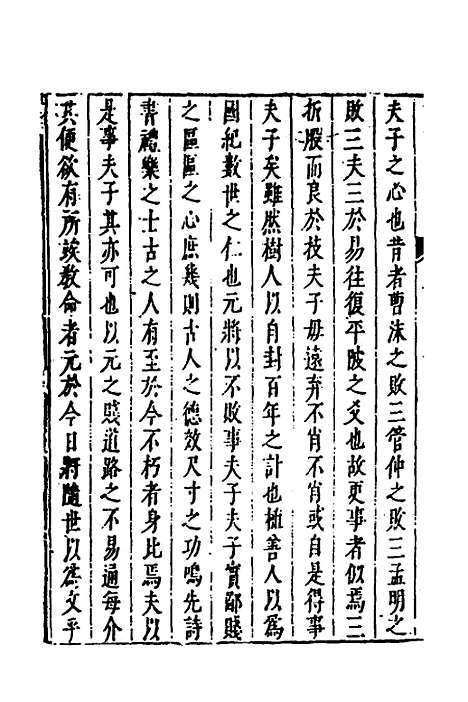 夫子之心也昔者曹沬之敗三管仲之敗三孟明之
敗三夫三於易往復平陂之爻也故更事者似焉三
折股而良於技夫子毋遠弃不肖不肖或自是得事
夫子矣雖然樹人以自封百年之計也植善人以爲
國紀數世之仁也元將以不敗事夫子夫子實鄙賤
之區區之心庶幾則古人之德效尺寸之功鳴先詩
書禮樂之士古之人有至於今不朽者身比焉夫以
是事夫子其亦可也以元之賤道路之不易遍每介
其便欲有所竢教命者元於今日將隨世以爲文乎